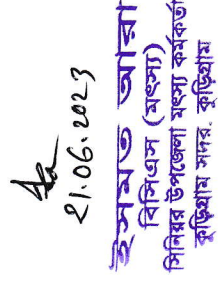 21.06.2023
ইসমত আরা
বিসিএস (মৎস্য)
সিনিয়র উপজেলা মৎস্য কর্মকর্তা
কুড়িগ্রাম সদর, কুড়িগ্রাম